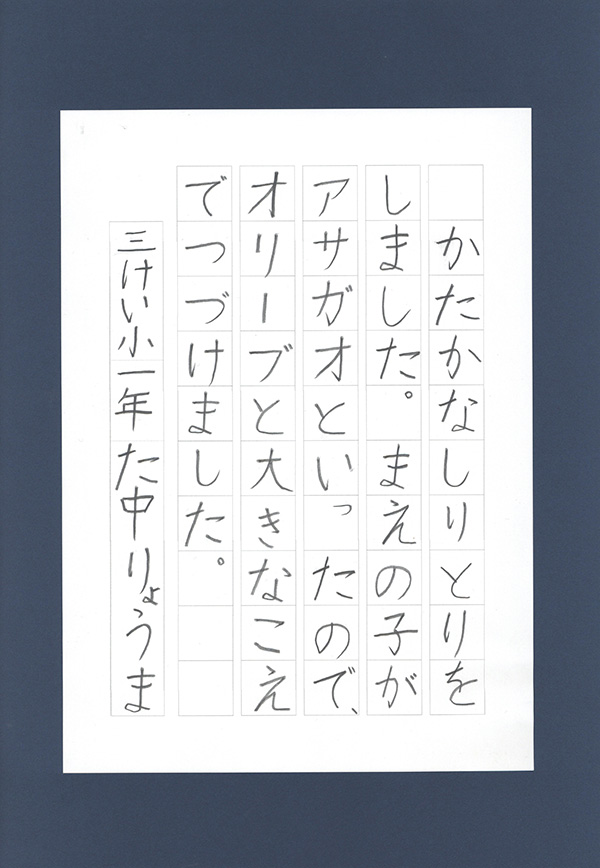 かたかなしりとりを
しました。まえの子が
アサガオといったので、
オリーブと大きなこえ
でつづけました。
三けい小一年 た中りょうま